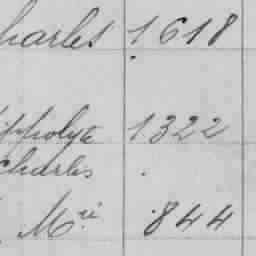 harles 1618
ippolyte 1322
charles .
Mré 844